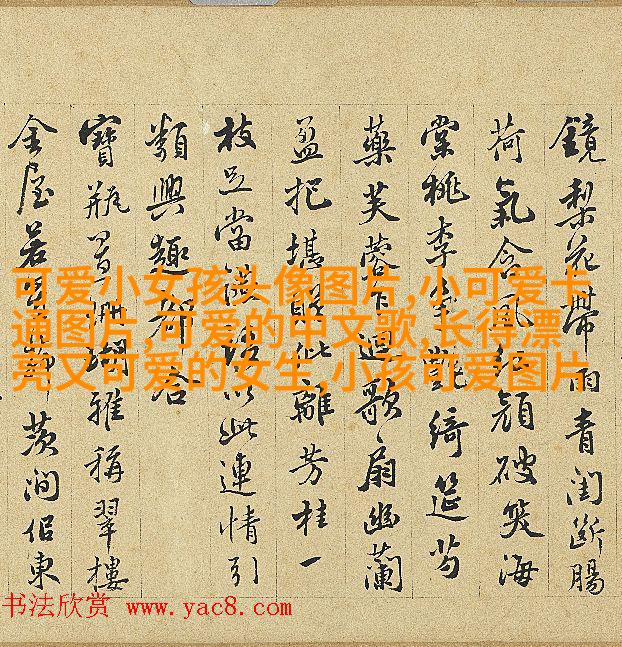 鏡梨花帶雨青閨斷腸
荷氣含風紅顏破笑海
棠桃李艷綺筵芍
藥芙蓉迴歌扇幽蘭
盈把堪此離芳桂一
枝足當以此連情引
類興趣都合
寶瓶珊瑚雅稱翠樓
金屋若茨澗侶東
可爱小女孩头像图片,小可爱卡
通图片,可爱的中文歌,长得漂
亮又可爱的女生,小孩可爱图片
书法欣赏 www.yac8.com